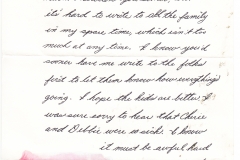 it's hard to write to all the family
in my spare time, which isn't too
much at any time. I know you'd
sooner have me write to the folks
first to let them know how everything's
going. I hope the kids are better. I
was sure sorry to hear that Cherie
and Debbie were so sick. I know
it must be awful hard